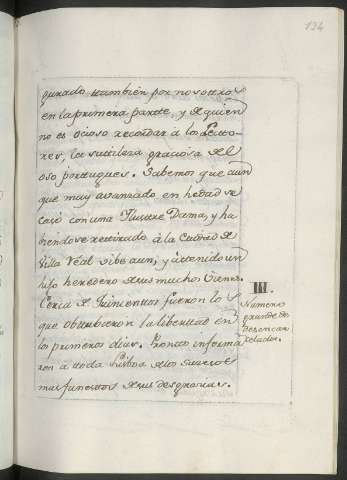 134
gurado tambien por nosotros
en la primera parte, y de quien
no es ocioso recordar a los Lecto-
res, la sutileza graciosa del
oso portugues. Sabemos que aun
que muy avanzado en hedad se
casó con una Ilustre Dama, y ha
biendose retirado à la Ciudad de
Villa Real vibe aun, y à tenido un
hijo heredero de sus muchos bienes.
Cerca de Quinientos fueron los
que obtubieron la libertad en
los primeros dias. Pronto informa
ron a toda Lisboa de los sucesos
mas funestos de sus desgracias.
III.
Numero
grande de
desencar
celados.